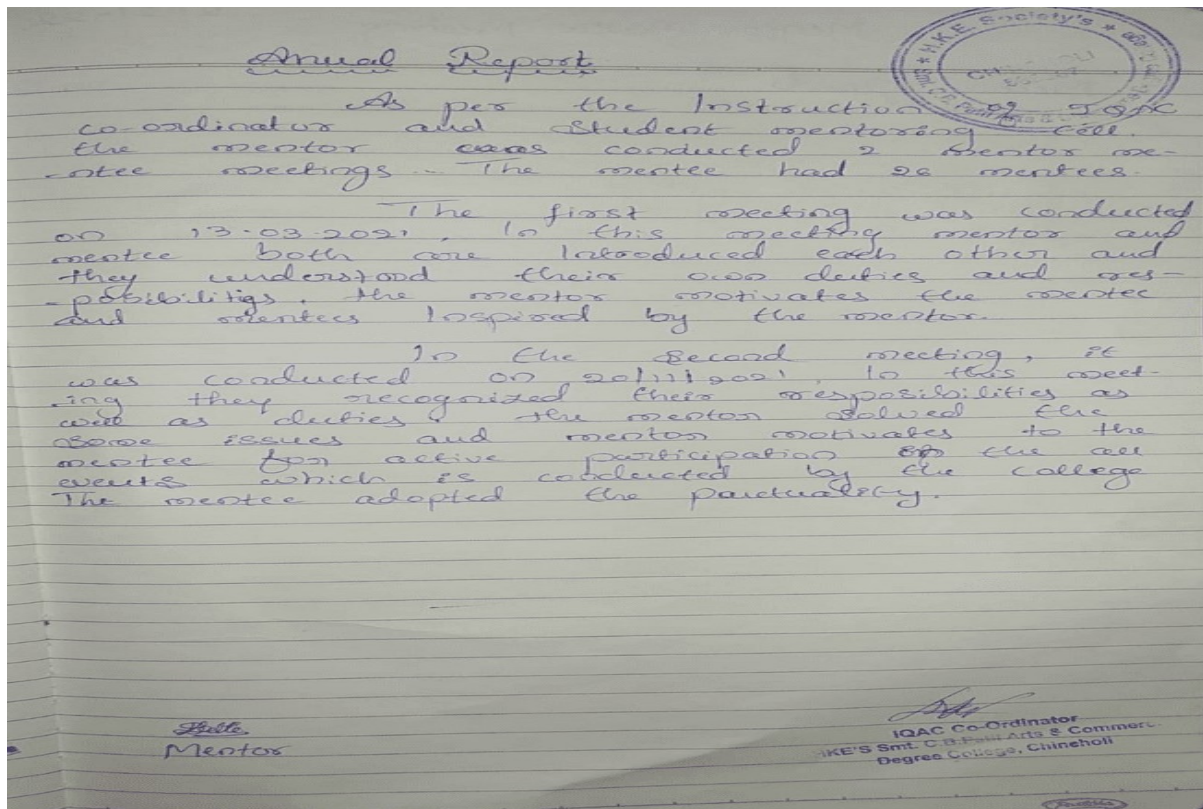 Anual Report
H.K.E. Society's
As per the Instruction of IQAC
co-ordinator and Student mentoring cell.
the mentor was conducted 2 mentor me-
-ntee meetings. The mentee had 26 mentees.
The first meeting was conducted
on 13-03-2021. In this meeting mentor and
mentee both are Introduced each other and
they understood their own duties and res-
-posibilities. the mentor motivates the mentee
and mentees Inspired by the mentor.
In the Second meeting, it
was conducted on 20/11/2021. In this meet-
-ing they recognized their resposibilities as
well as duties. the mentor solved the
some issues and mentor motivates to the
mentee for active participation of the all
events which is conducted by the college
The mentee adopted the puctuality.
Mentor
IQAC Co-Ordinator
HKE'S Smt. C.B. Patil Arts & Commerc
Degree College, Chincholi